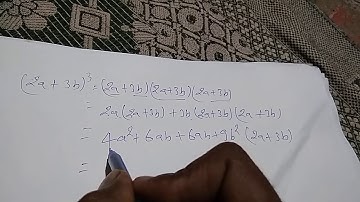 (2a + 3b)³ = (2a+3b)(2a+3b)(2a+3b)
= 2a(2a+3b) + 3b(2a+3b)(2a+3b)
= 4a²+6ab+6ab+9b² (2a+3b)
=